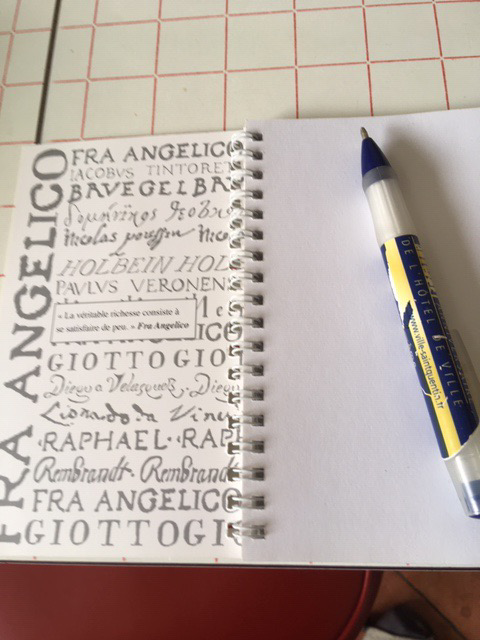 FRA ANGELICO
FRA ANGELICO
IACOBVS TINTORET
BAVEGEL BA
Nicolas poussin Nico
HOLBEIN HOL
PAVLVS VERONENS
« La véritable richesse consiste à
se satisfaire de peu. » Fra Angelico
ICO
GIOTTOGIO
Diego Velasquez, Diego
Lionardo da Vinci
·RAPHAEL·RAP
Rembrandt· Rembrandt
FRA ANGELICO
GIOTTOGI
DE L'HÔTEL DE VILLE
www.ville-saintquentin.fr